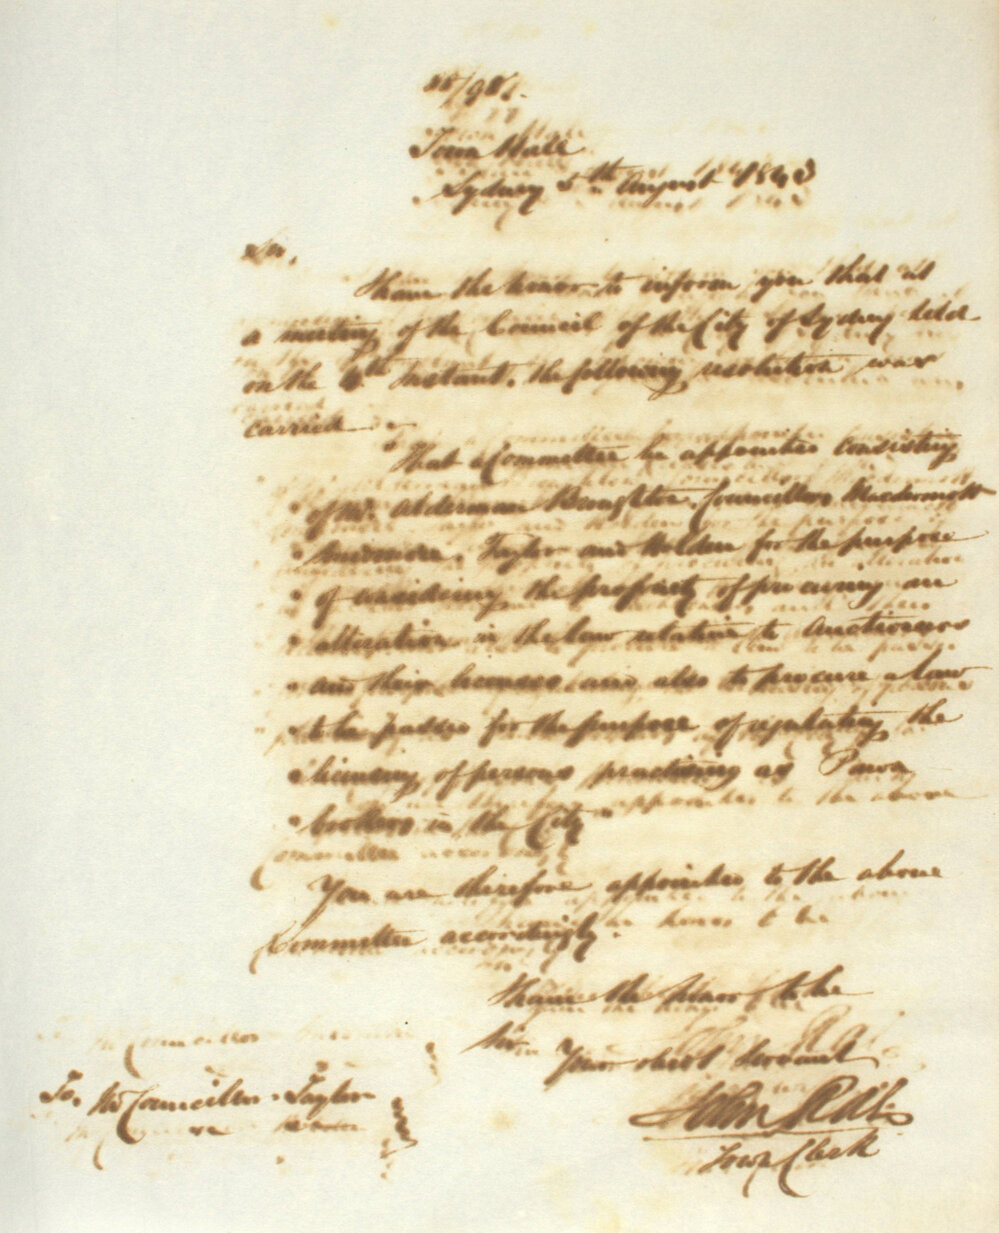 Town Hall
Sydney 5th August 1843
Sir,
I have the honor to inform you that at
a meeting of the Council of the City of Sydney held
on the 4th Instant, the following resolution was
carried
"That a Committee be appointed consisting
" of Mr. Alderman Broughton, Councillors Macdermott
" Taylor and Holden for the purpose
" of considering the propriety of procuring an
" alteration in the law relative to Auctioneers
" and their licenses and also to procure a law
" to be passed for the purpose of regulating the
" licensing of persons practising as Pawn
" brokers in the City"
You are therefore appointed to the above
Committee accordingly.
I have the honor to be
Sir
Your obedt Servant
John Rae
Town Clerk
To, Mr Councillor Taylor